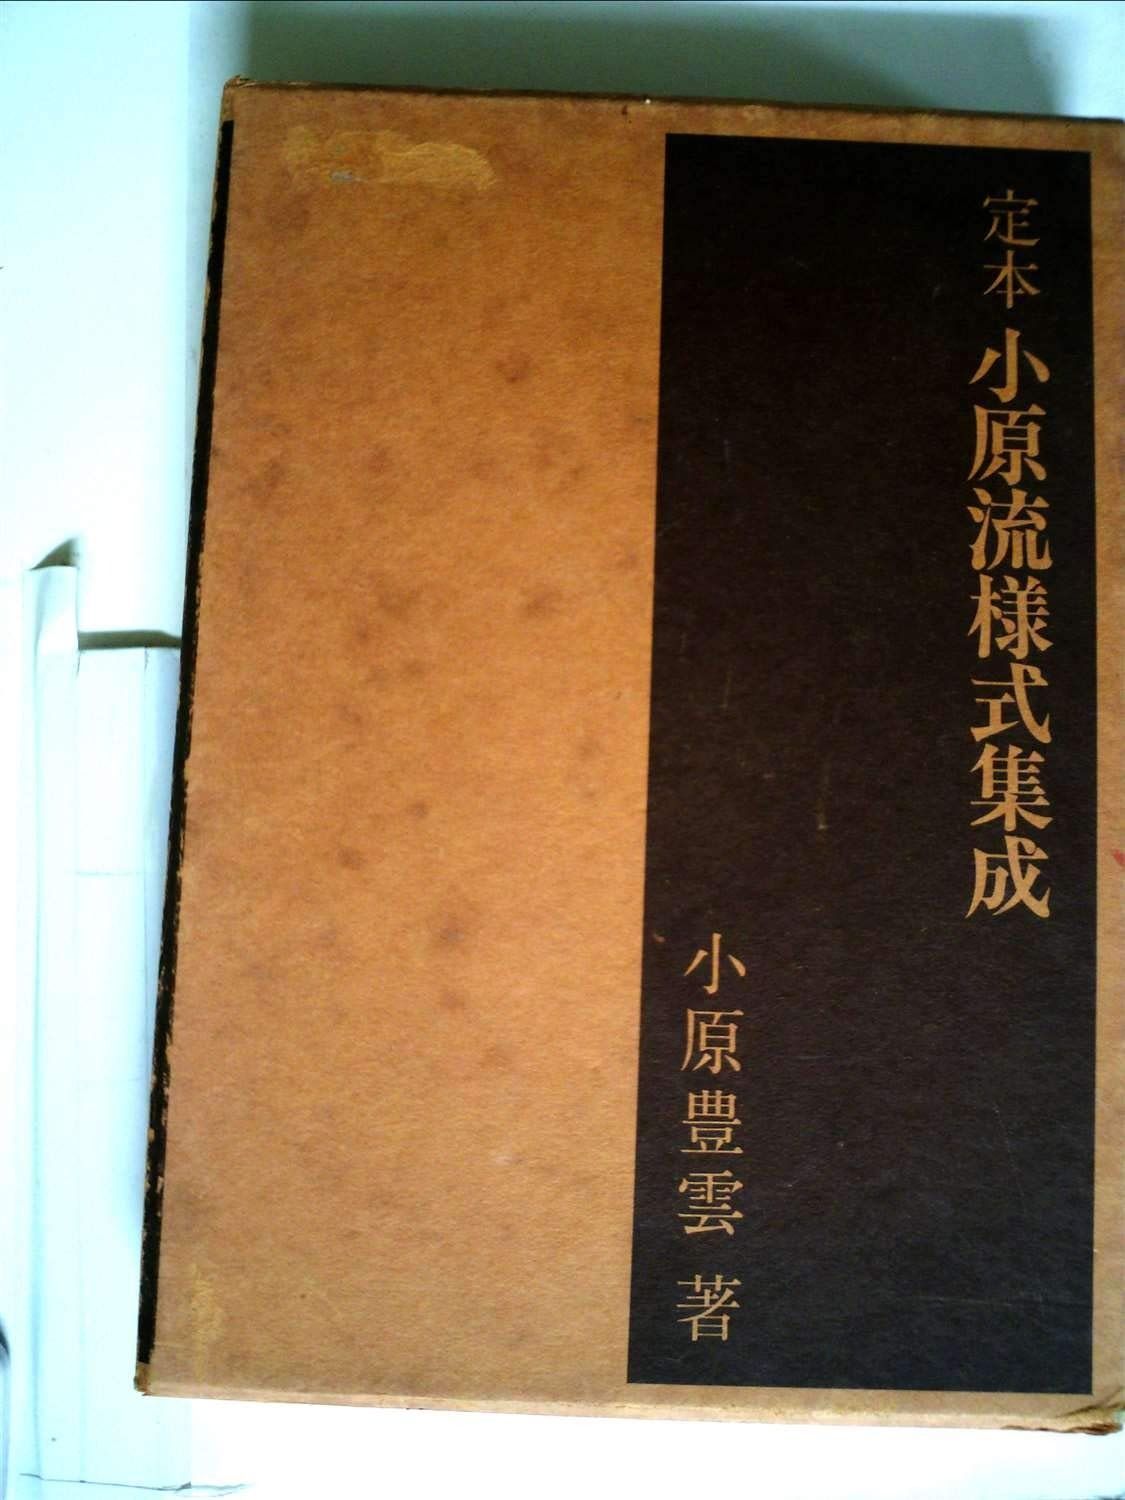 定本 小原流様式集成
小原豊雲 著